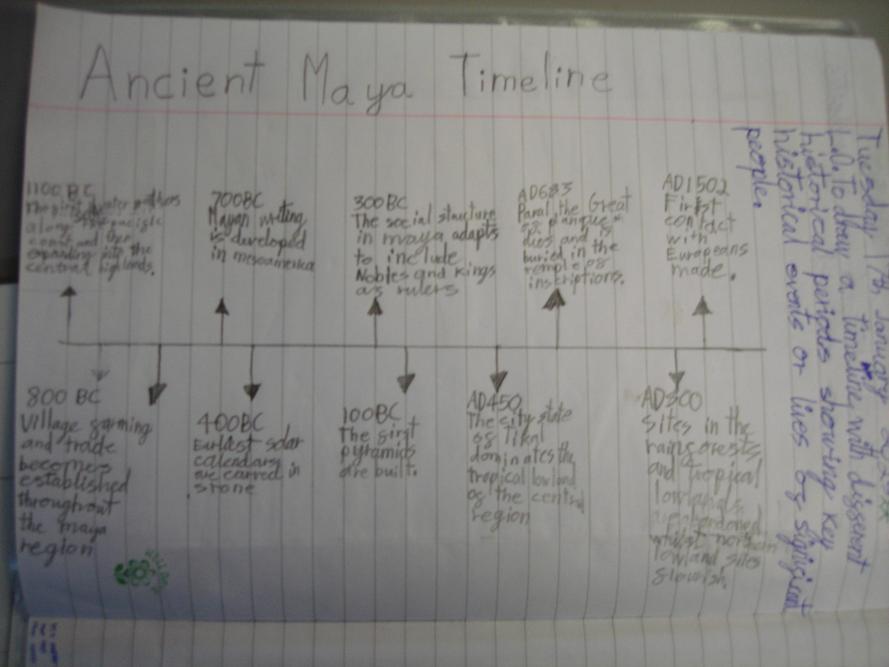 Ancient Maya Timeline
Tuesday 17th January
L.O. to draw a timeline with different
historical periods showing key
historical events or lives of significant
people.
1100 BC
The first
along the pacific
coast and then
expanding into the
central highlands.
700BC
Mayan writing
is developed
in mesoamerica
300BC
The social structure
in maya adapts
to include
Nobles and kings
as rulers
AD683
the Great
of
dies and is
buried in the
temple of
inscriptions.
AD1502
First
contact
with
Europeans
made.
800 BC
Village farming
and trade
becomes
established
throughout
the maya
region
400BC
Earliest solar
calendars
are carved in
stone
100BC
The first
pyramids
are built.
AD450
The city state
of
dominates the
tropical lowland
of the central
region
AD900
Sites in the
rainforests
and tropical
lowlands
are abandoned
whilst northern
lowland sites
flourish.